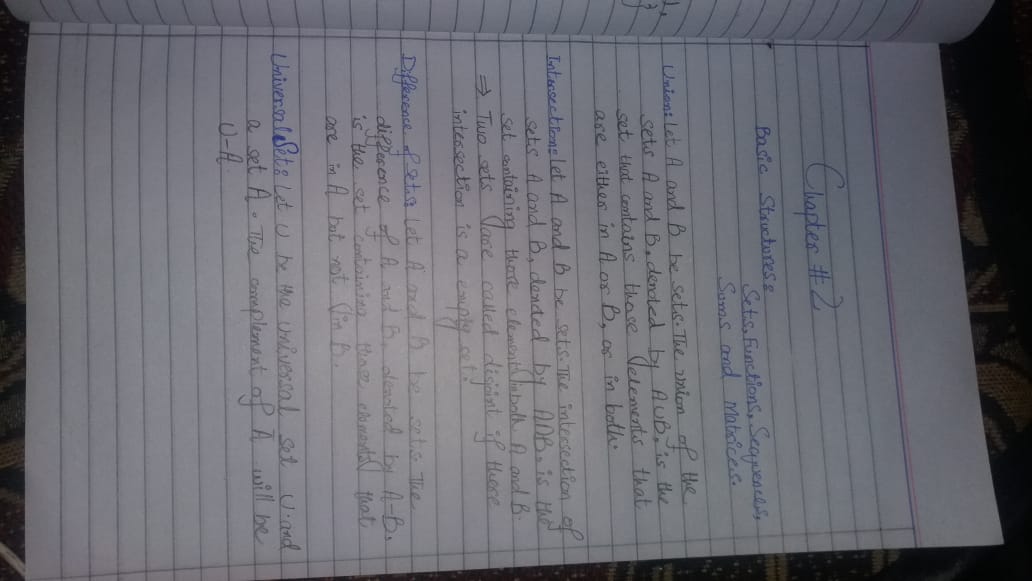 Chapter # 2
Basic Structures:
Sets, Functions, Sequences,
Sums and Matrices.
Union: Let A and B be sets. The union of the
sets A and B, denoted by A∪B, is the
set that contains those elements that
are either in A or B, or in both.
Intersection: Let A and B be sets. The intersection of
sets A and B, denoted by A∩B, is the
set containing those elements in both A and B.
⇒ Two sets are called disjoint if there
intersection is a empty set.
Difference of sets: Let A and B be sets. The
difference of A and B, denoted by A-B,
is the set containing those elements that
are in A but not in B.
Universal Set: Let U be the universal set U. and
a set A. The complement of A will be
U-A.